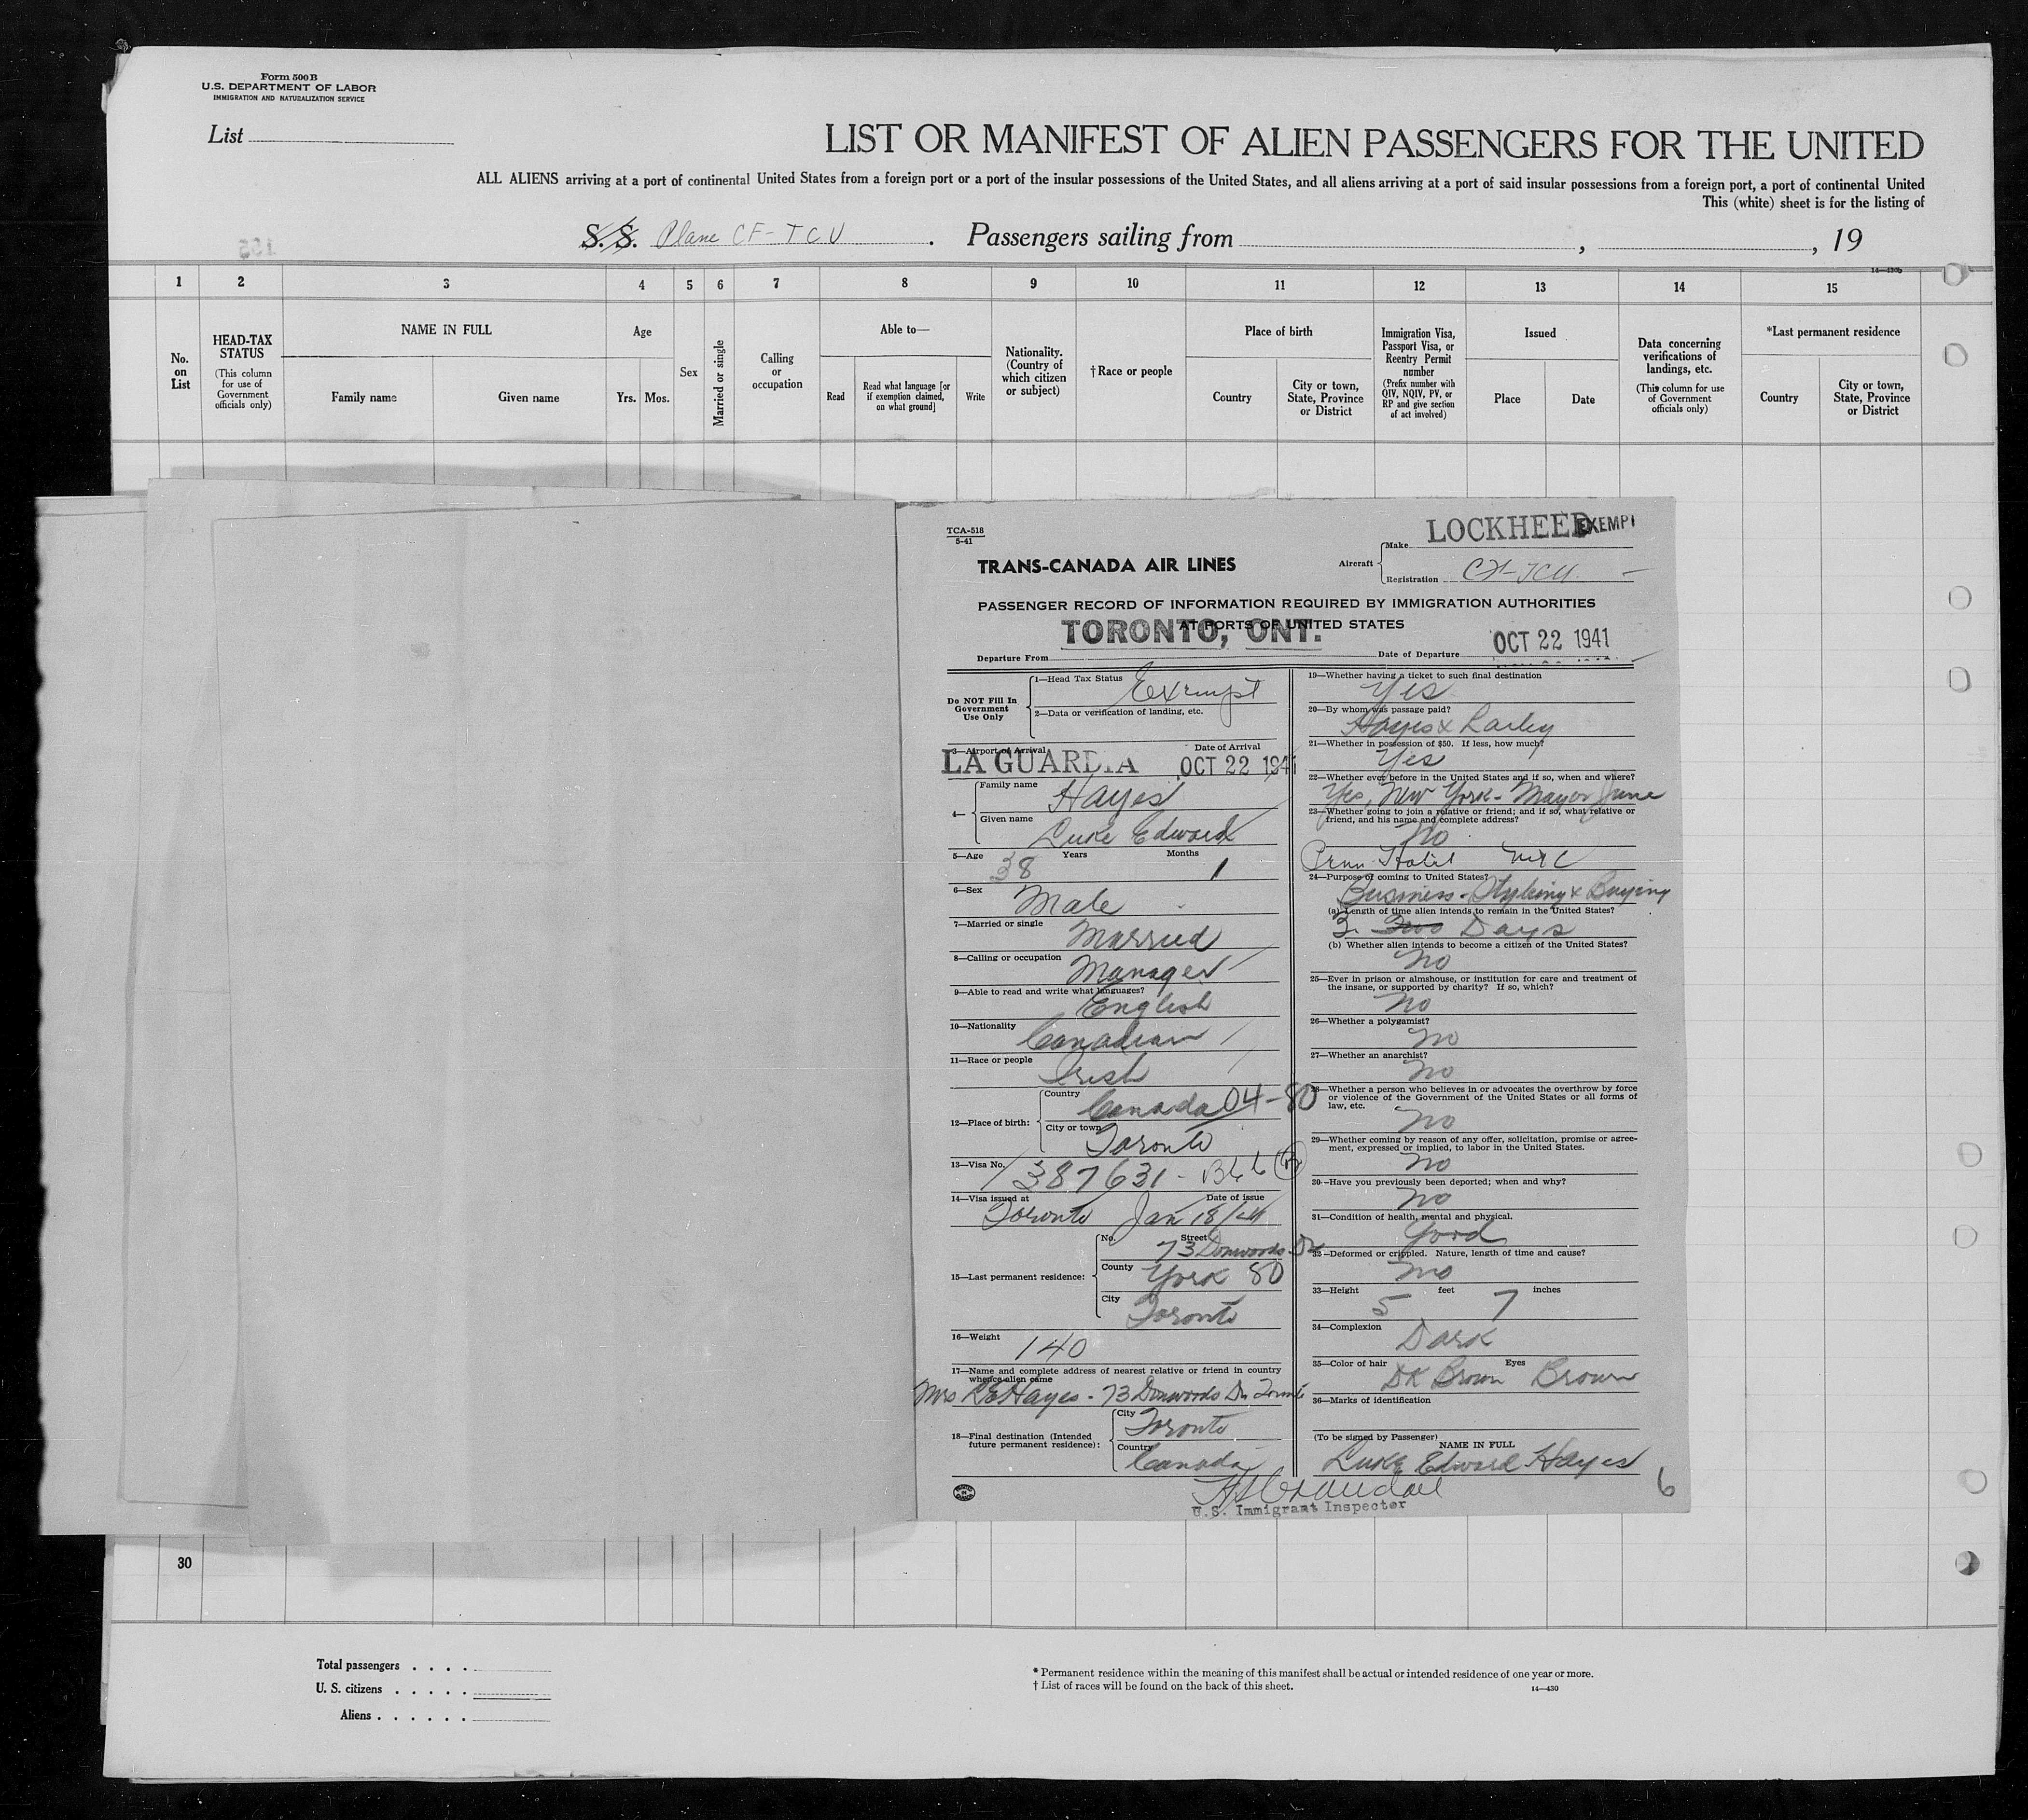 Form 500 B
U.S. DEPARTMENT OF LABOR
IMMIGRATION AND NATURALIZATION SERVICE
List
LIST OR MANIFEST OF ALIEN PASSENGERS FOR THE UNITED
ALL ALIENS arriving at a port of continental United States from a foreign port or a port of the insular possessions of the United States, and all aliens arriving at a port of said insular possessions from a foreign port, a port of continental United
This (white) sheet is for the listing of
S. S. Plane CF-TCU . Passengers sailing from , , 19
14—430b
1 2 3 4 5 6 7 8 9 10 11 12 13 14 15
No. on List
HEAD-TAX STATUS
(This column for use of Government officials only)
NAME IN FULL
Family name
Given name
Age
Yrs. Mos.
Sex
Married or single
Calling or occupation
Able to—
Read
Read what language [or if exemption claimed, on what ground]
Write
Nationality. (Country of which citizen or subject)
†Race or people
Place of birth
Country
City or town, State, Province or District
Immigration Visa, Passport Visa, or Reentry Permit number
(Prefix number with QIV, NQIV, PV, or RP and give section of act involved)
Issued
Place
Date
Data concerning verifications of landings, etc.
(This column for use of Government officials only)
*Last permanent residence
Country
City or town, State, Province or District
TCA-518
5-41
TRANS-CANADA AIR LINES
Aircraft
Make LOCKHEED EXEMPT
Registration CF-TCU
PASSENGER RECORD OF INFORMATION REQUIRED BY IMMIGRATION AUTHORITIES
AT PORTS OF UNITED STATES
Departure From TORONTO, ONT. Date of Departure OCT 22 1941
Do NOT Fill In Government Use Only
1—Head Tax Status Exempt
2—Data or verification of landing, etc.
3—Airport of Arrival LA GUARDIA Date of Arrival OCT 22 1941
4— Family name Hayes
Given name Luke Edward
5—Age 38 Years Months 1
6—Sex Male
7—Married or single Married
8—Calling or occupation Manager
9—Able to read and write what languages? English
10—Nationality Canadian
11—Race or people Irish
12—Place of birth: Country Canada 04-80
City or town Toronto
13—Visa No. 387631 - (B)
14—Visa issued at Toronto Date of issue Jan 18/41
15—Last permanent residence: No. Street 73 Donwoods Dr
County York 80
City Toronto
16—Weight 140
17—Name and complete address of nearest relative or friend in country whence alien came
Mrs L E Hayes - 73 Donwoods Dr Toronto
18—Final destination (Intended future permanent residence): City Toronto
Country Canada
19—Whether having a ticket to such final destination
Yes
20—By whom was passage paid?
Hayes & Lailey
21—Whether in possession of $50. If less, how much?
Yes
22—Whether ever before in the United States and if so, when and where?
Yes, New York - May or June
23—Whether going to join a relative or friend; and if so, what relative or friend, and his name and complete address?
No
Penn Hotel NYC
24—Purpose of coming to United States?
Business - Styleing & Buying
(a) Length of time alien intends to remain in the United States?
3 Two Days
(b) Whether alien intends to become a citizen of the United States?
No
25—Ever in prison or almshouse, or institution for care and treatment of the insane, or supported by charity? If so, which?
No
26—Whether a polygamist?
No
27—Whether an anarchist?
No
28—Whether a person who believes in or advocates the overthrow by force or violence of the Government of the United States or all forms of law, etc.
No
29—Whether coming by reason of any offer, solicitation, promise or agreement, expressed or implied, to labor in the United States.
No
30—Have you previously been deported; when and why?
No
31—Condition of health, mental and physical.
Good
32—Deformed or crippled. Nature, length of time and cause?
No
33—Height 5 feet 7 inches
34—Complexion Dark
35—Color of hair DK Brown Eyes Brown
36—Marks of identification
(To be signed by Passenger) NAME IN FULL
Luke Edward Hayes
U.S. Immigrant Inspector
6
30
Total passengers . . . .
U. S. citizens . . . . .
Aliens . . . . . .
* Permanent residence within the meaning of this manifest shall be actual or intended residence of one year or more.
† List of races will be found on the back of this sheet.
14—430